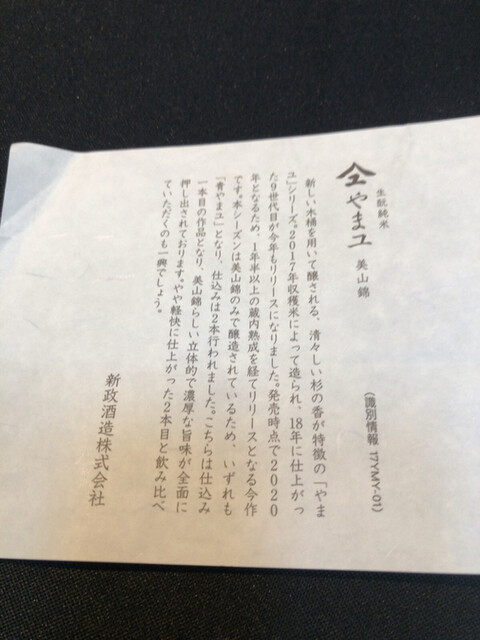 生酛純米
やまユ 美山錦
(識別情報 17YMY-01)
新しい木桶を用いて醸される、清々しい杉の香が特徴の「やま
ユ」シリーズ。2017年収穫米によって造られ、18年に仕上がっ
た9世代目が今年もリリースになりました。発売時点で2020
年となるため、1年半以上の蔵内熟成を経てリリースとなる今作
です。本シーズンは美山錦のみで醸造されているため、いずれも
「青やまユ」となり、仕込みは2本行われました。こちらは仕込み
一本目の作品となり、美山錦らしい立体的で濃厚な旨味が全面に
押し出されております。やや軽快に仕上がった2本目と飲み比べ
ていただくのも一興でしょう。
新政酒造株式会社